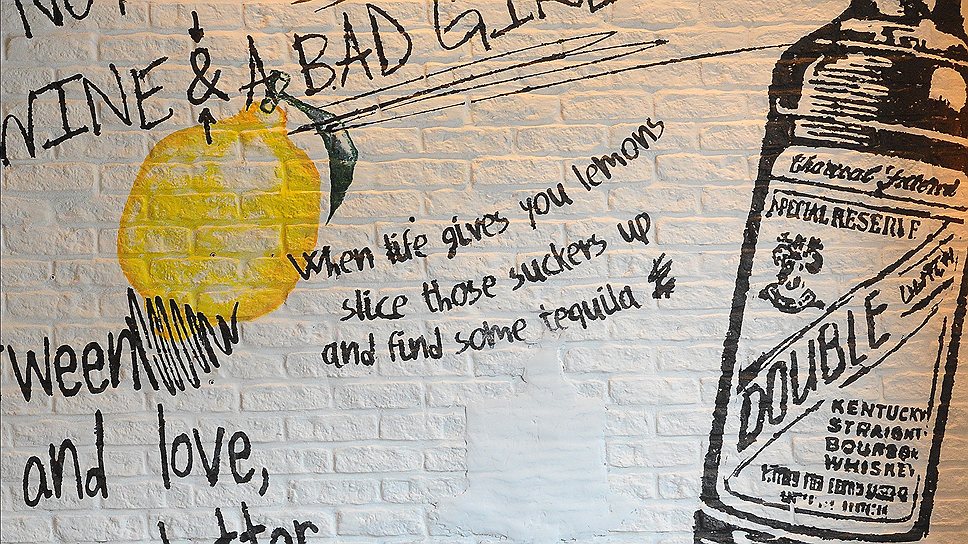 WINE & A BAD GIRL
When life gives you lemons
slice those suckers up
and find some tequila
tween
and love,
Charcoal Filtered
SPECIAL RESERVE
DOUBLE
KENTUCKY
STRAIGHT
BOURBON
WHISKEY